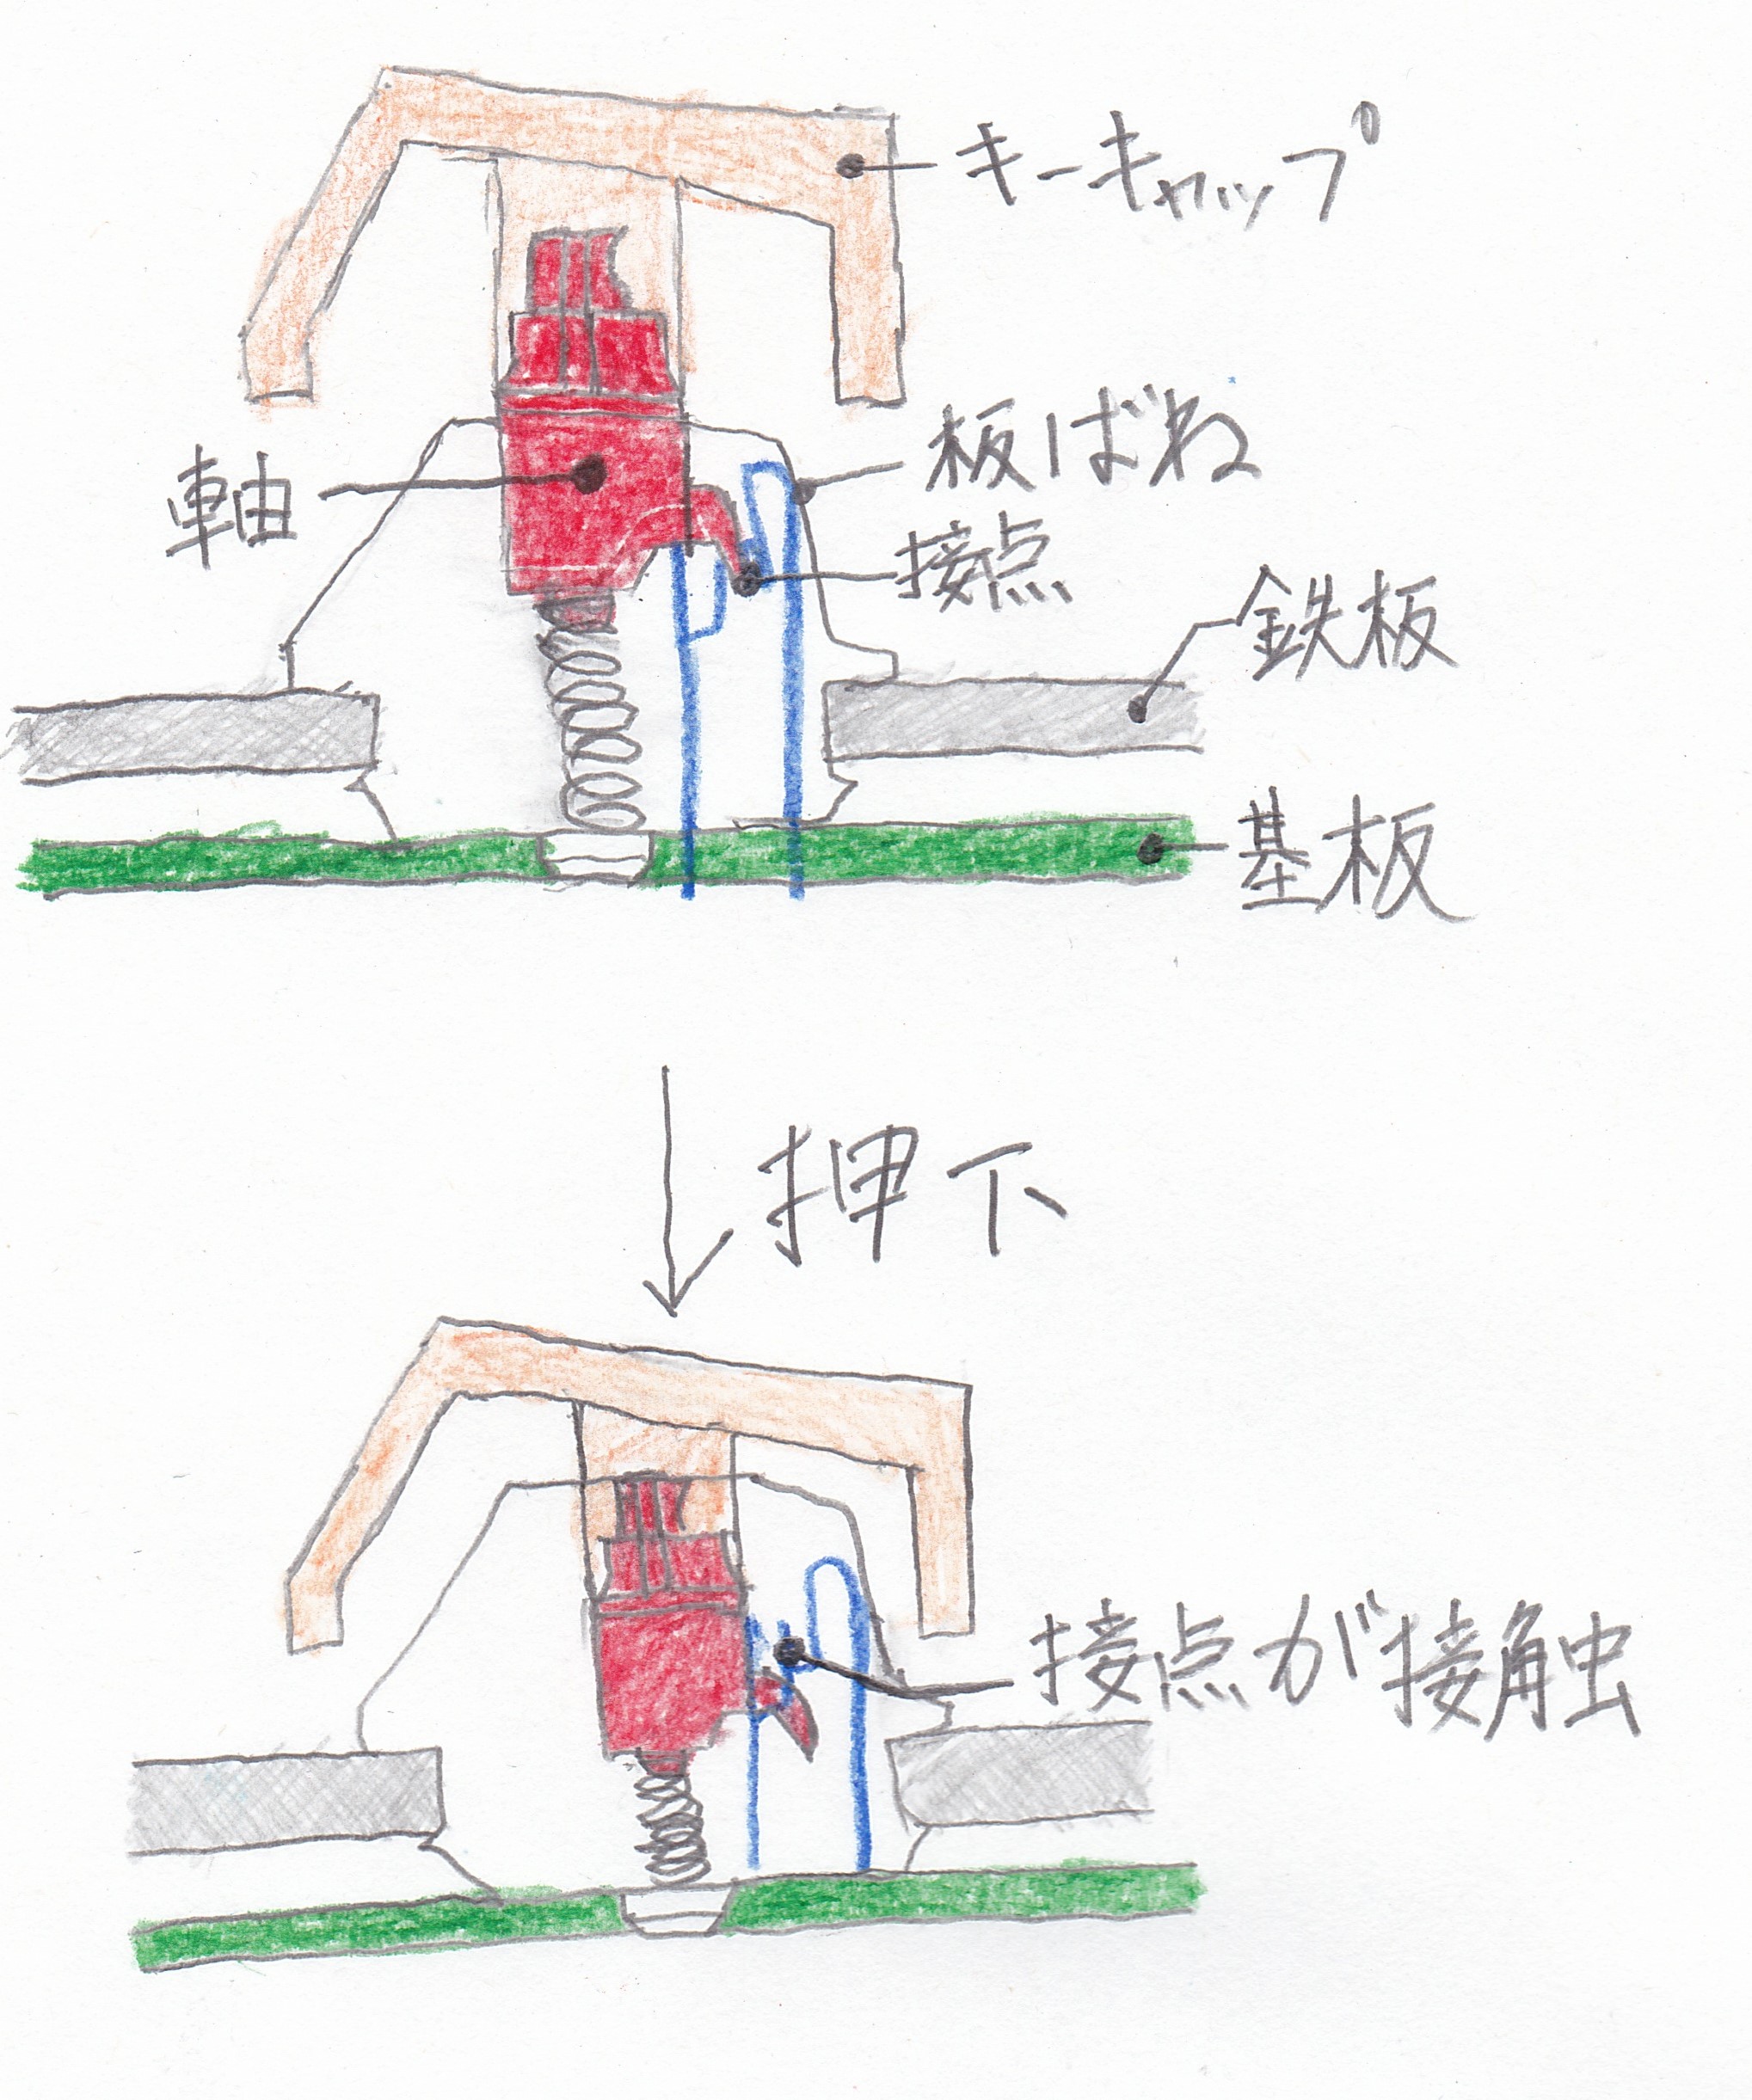 キーキャップ
板ばね
軸
接点
鉄板
基板
押下
接点が接触